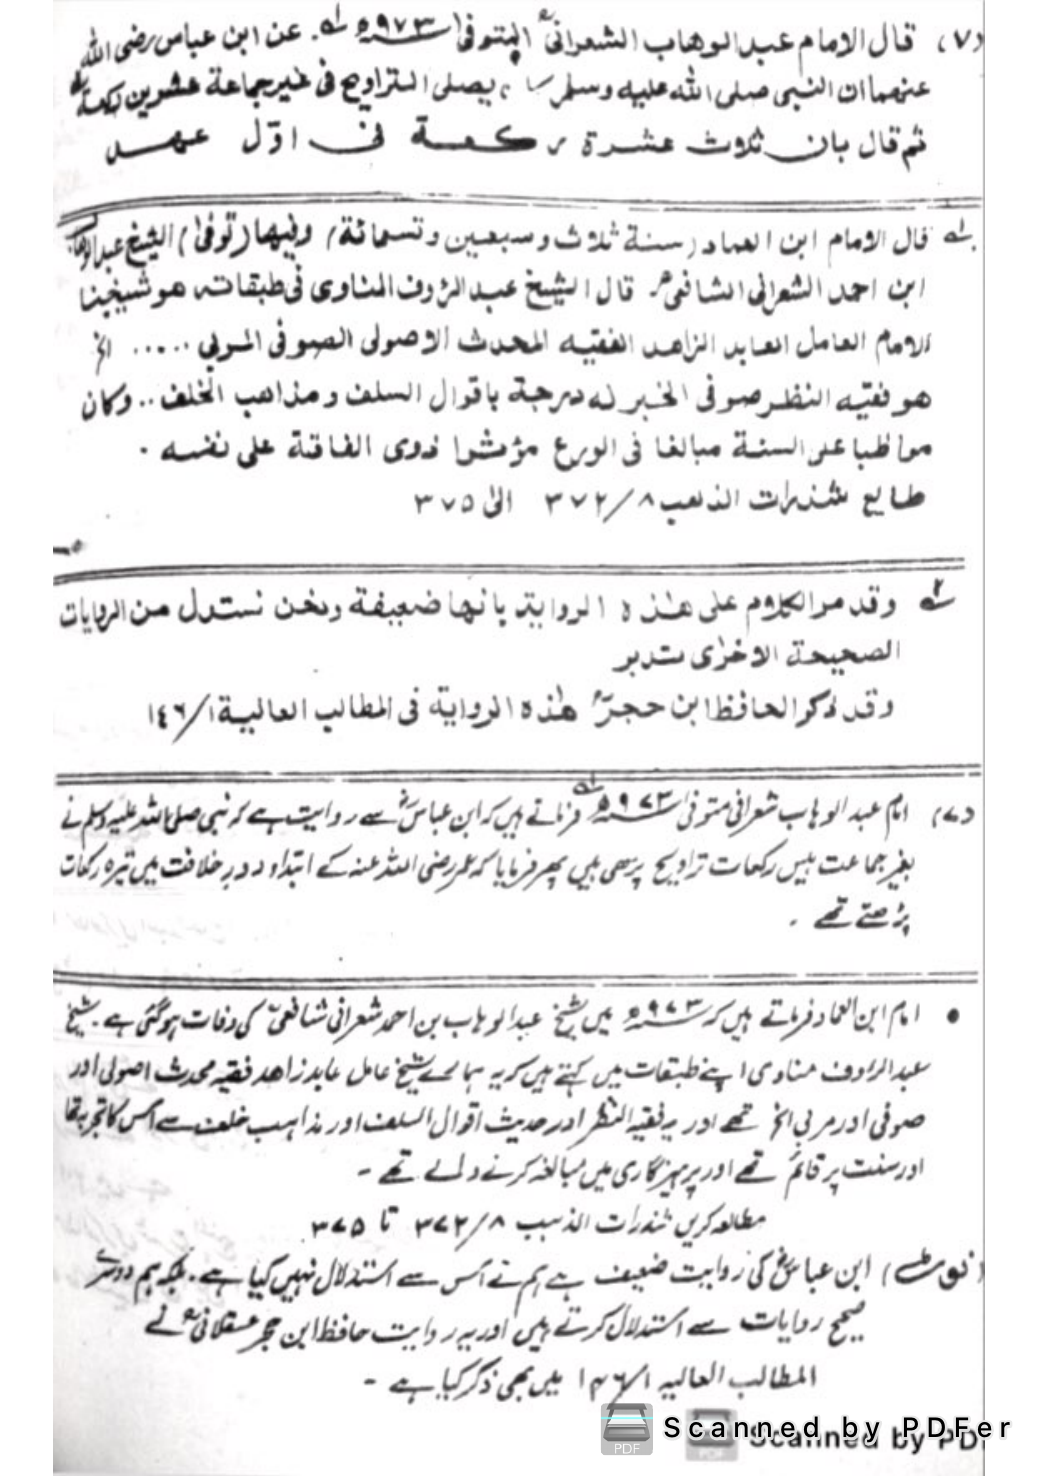 (۷) قال الامام عبد الوهاب الشعرانیؒ المتوفیٰ ۹۷۳ھ ۱؎. عن ابن عباس رضی الله
عنهما ان النبی صلی الله علیه وسلم یصلی التراویح فی غیر جماعة عشرین رکعة ۲؎
ثم قال بان ثلاث عشرة رکعة فی اوّل عهد
۱؎ قال الامام ابن العماد (سنة ثلاث وسبعین وتسمائة) وفیها (توفیٰ) الشیخ عبد الوهاب
ابن احمد الشعرانی الشافعیؒ. قال الشیخ عبد الرؤف المناوی فی طبقاته هو شیخنا
الامام العامل العابد الزاهد الفقیه المحدث الاصولی الصوفی المربی ..... الخ
هو فقیه النظر صوفی الخبر له دربة باقوال السلف ومذاهب الخلف .. وکان
مواظبا علی السنة مبالغا فی الورع مؤثرا ذوی الفاقة علی نفسه .
طالع شذرات الذهب ۸/۳۷۲ الیٰ ۳۷۵
۲؎ وقد مر الکلام علی هٰذه الروایة بانها ضعیفة ونحن نستدل من الروایات
الصحیحة الاخرٰی تدبر
وقد ذکر الحافظ ابن حجرؒ هٰذه الروایة فی المطالب العالیة ۱/۱۴۶
(۷) امام عبد الوہاب شعرانی متوفی ۹۷۳ھ ۱؎ فرماتے ہیں کہ ابن عباسؓ سے روایت ہے کہ نبی صلی اللہ علیہ وسلم نے
بغیر جماعت بیس رکعات تراویح پڑھی ہیں پھر فرمایا کہ عمر رضی اللہ عنہ کے ابتداء دور خلافت میں تیرہ رکعات
پڑھتے تھے ۔
• امام ابن العماد فرماتے ہیں کہ ۹۷۳ھ میں شیخ عبد الوہاب بن احمد شعرانی شافعیؒ کی وفات ہوگئی ہے ۔ شیخ
عبد الرؤف مناوی اپنے طبقات میں کہتے ہیں کہ یہ ہمارے شیخ عامل عابد زاھد فقیہ محدث اصولی اور
صوفی اور مربی الخ تھے اور یہ فقیہ النظر اور حدیث اقوال السلف اور مذاہب خلف سے اس کا تجربہ تھا
اور سنت پر قائم تھے اور پرہیزگاری میں مبالغہ کرنے والے تھے ۔
مطالعہ کریں شذرات الذہب ۸/۳۷۲ تا ۳۷۵
(نوٹ) ابن عباسؓ کی روایت ضعیف ہے ہم نے اس سے استدلال نہیں کیا ہے ۔ بلکہ ہم دوسرے
صحیح روایات سے استدلال کرتے ہیں اور یہ روایت حافظ ابن حجر عسقلانیؒ نے
المطالب العالیہ ۱/۱۴۶ میں بھی ذکر کیا ہے ۔
Scanned by PDFer
Scanned by PD